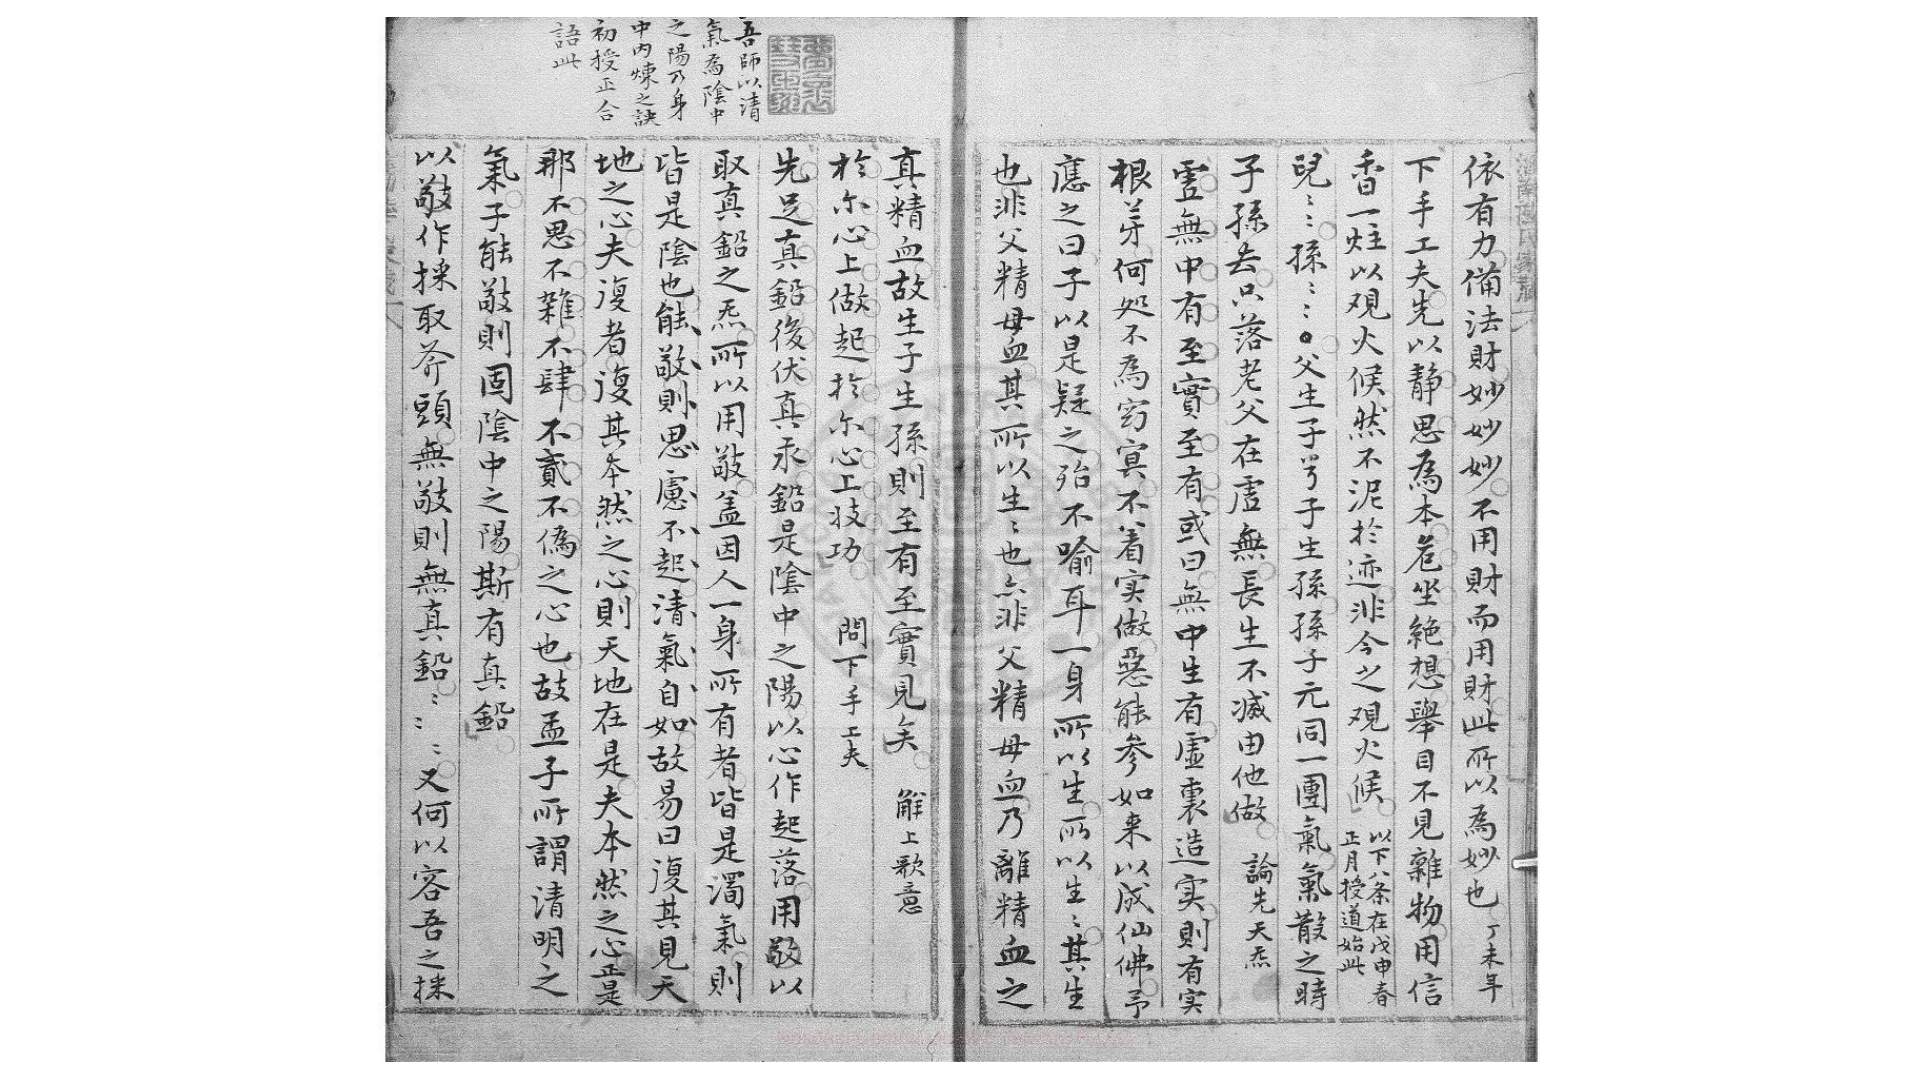 依有力備法財妙妙妙不用財而用財此所以為妙也丁未年
下手工夫先以靜思為本危坐絕想舉目不見雜物用信
香一炷以观火候然不泥於迹非今之观火候
以下八条在戊申春
正月授道始此
兒〻〻孫〻〻。父生子兮子生孫孫子元同一團氣氣散之時
子孫去只落老父在虛無長生不滅由他做
論先天炁
虛無中有至實至有或曰無中生有虛裏造实則有实
根芽何处不為窈冥不着实做惡能參如来以成仙佛予
應之曰子以是疑之殆不喻耳一身所以生所以生〻其生
也非父精母血其所以生〻也亦非父精母血乃離精血之
真精血故生子生孫則至有至實見矣
解上歌意
於尔心上做起於尔心上妝功
問下手工夫
先足真鉛後伏真汞鉛是陰中之陽以心作起落用敬以
取真鉛之炁所以用敬盖因人一身所有者皆是濁氣則
皆是陰也能敬則思慮不起清氣自如故易曰復其見天
地之心夫復者復其本然之心則天地在是夫本然之心正是
那不思不雜不肆不貳不偽之心也故孟子所謂清明之
氣子能敬則固陰中之陽斯有真鉛
以敬作採取斧頭無敬則無真鉛〻〻〻又何以容吾之採
吾師以清
氣為陰中
之陽乃身
中内煉之訣
初授正合
語此